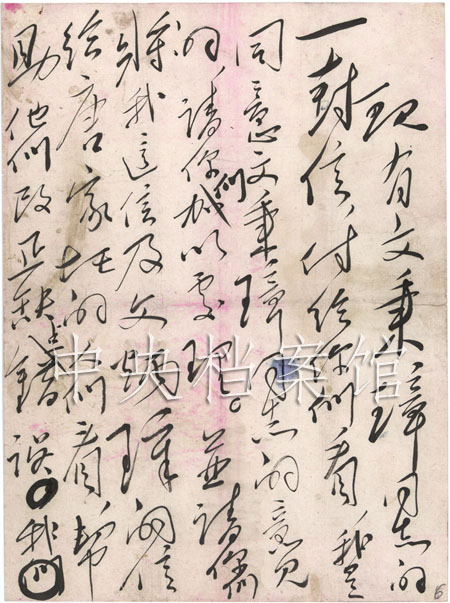 现有文秉璋同志的
一封信，付给你们看，我是
同意文秉璋同志的意见
的，请你们加以处理。並请你们
将我这信及文炳璋的信
给唐家圫的人们看，帮
助他们改正缺点错误。我们
中央档案馆
6